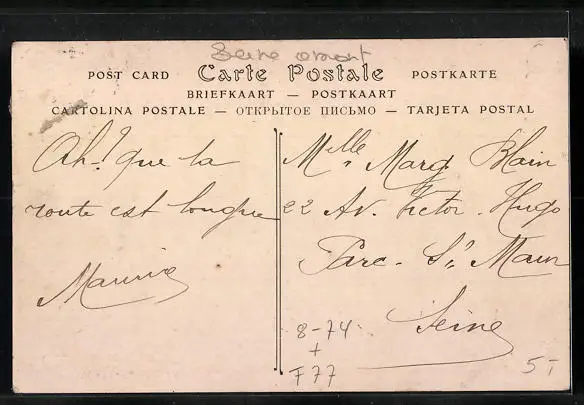 Seine
POST CARD Carte Postale POSTKARTE
BRIEFKAART — POSTKAART
CARTOLINA POSTALE — ОТКРЫТОЕ ПИСЬМО — TARJETA POSTAL
Ah! que ta
route est longue
Maurice
Melle Marg. Blain
22 Av. Victor. Hugo
Parc. St Maur
Seine
8-74
+
F77
5-